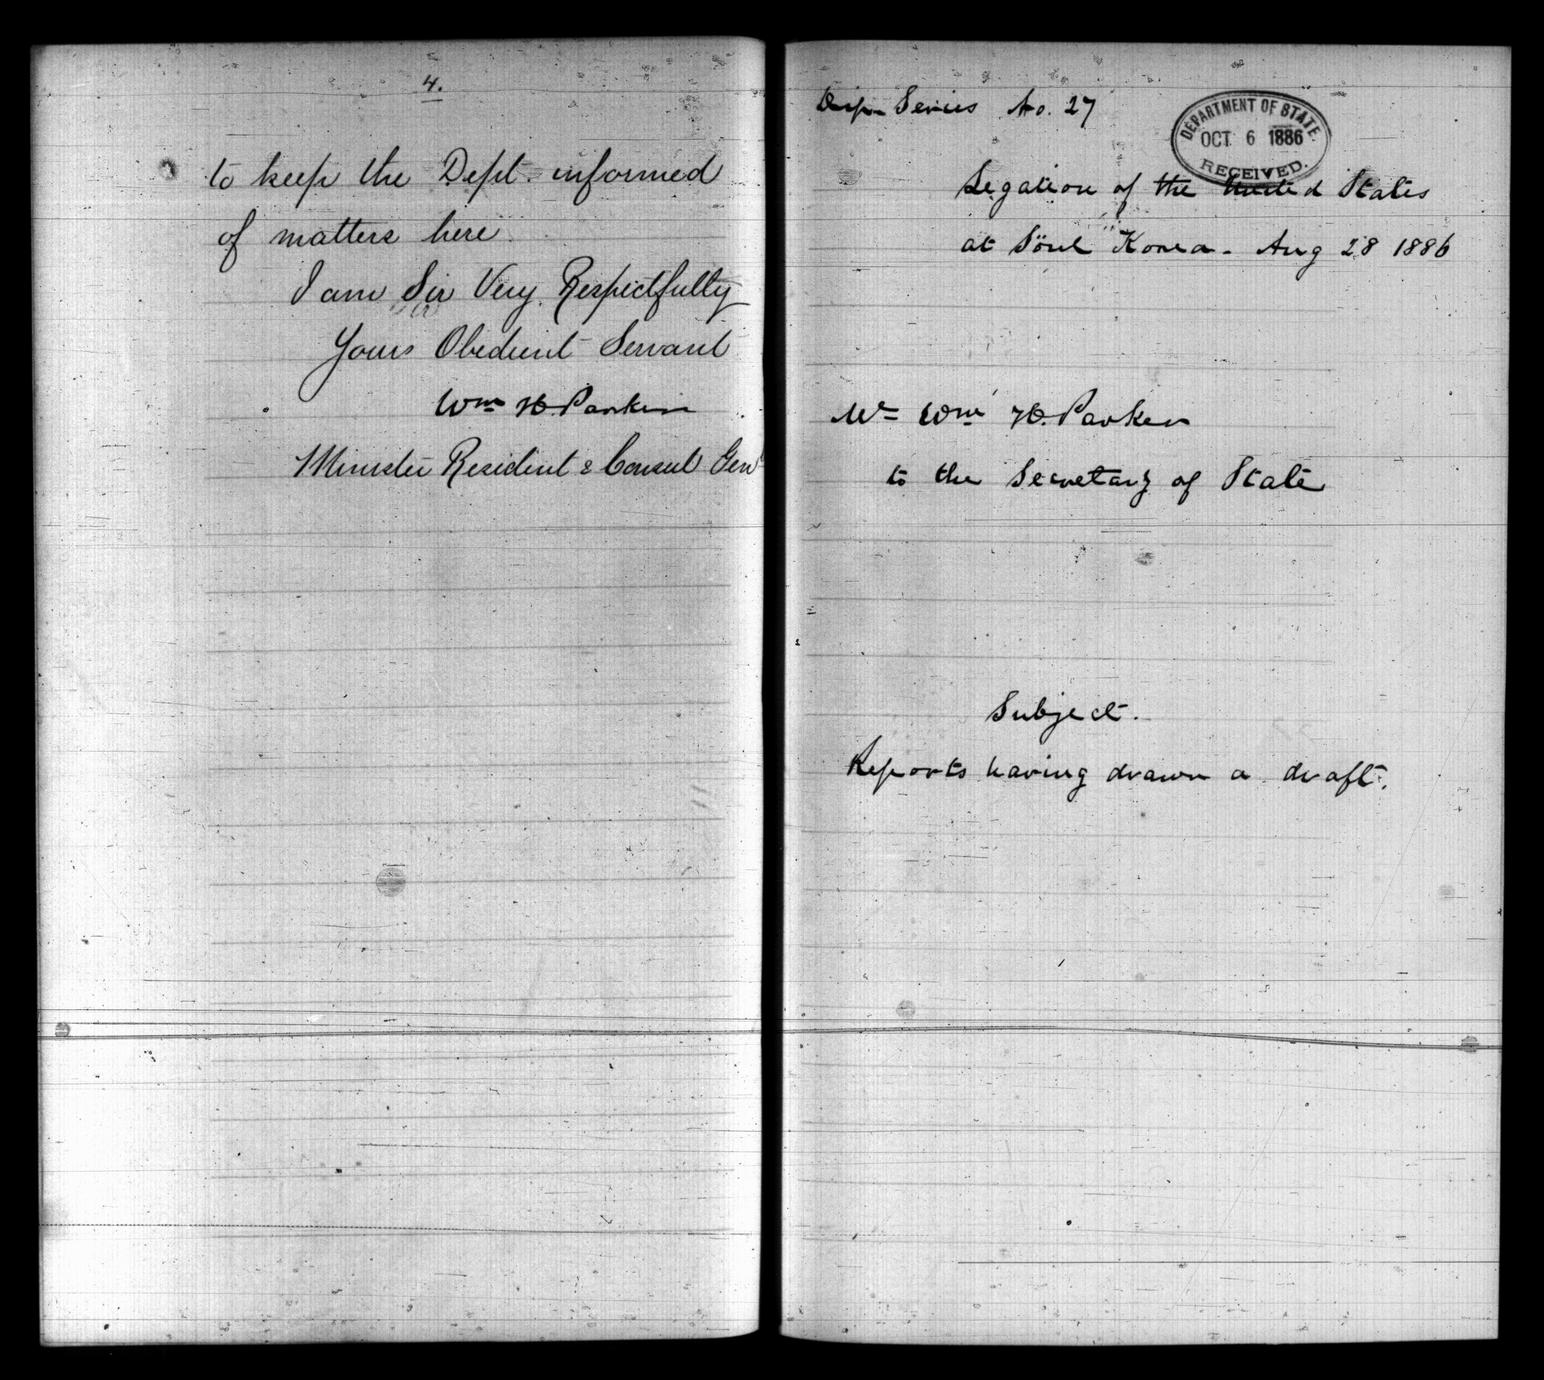 4.
to keep the Dept. informed
of matters here
I am Sir Very Respectfully
Yours Obedient Servant
Wm H. Parker
Minister Resident & Consul Genl
Dip. Series No. 27
DEPARTMENT OF STATE
OCT 6 1886
RECEIVED.
Legation of the United States
at Söul Korea. Aug 28 1886
Mr Wm H. Parker
to the Secretary of State
Subject.
Reports having drawn a draft.